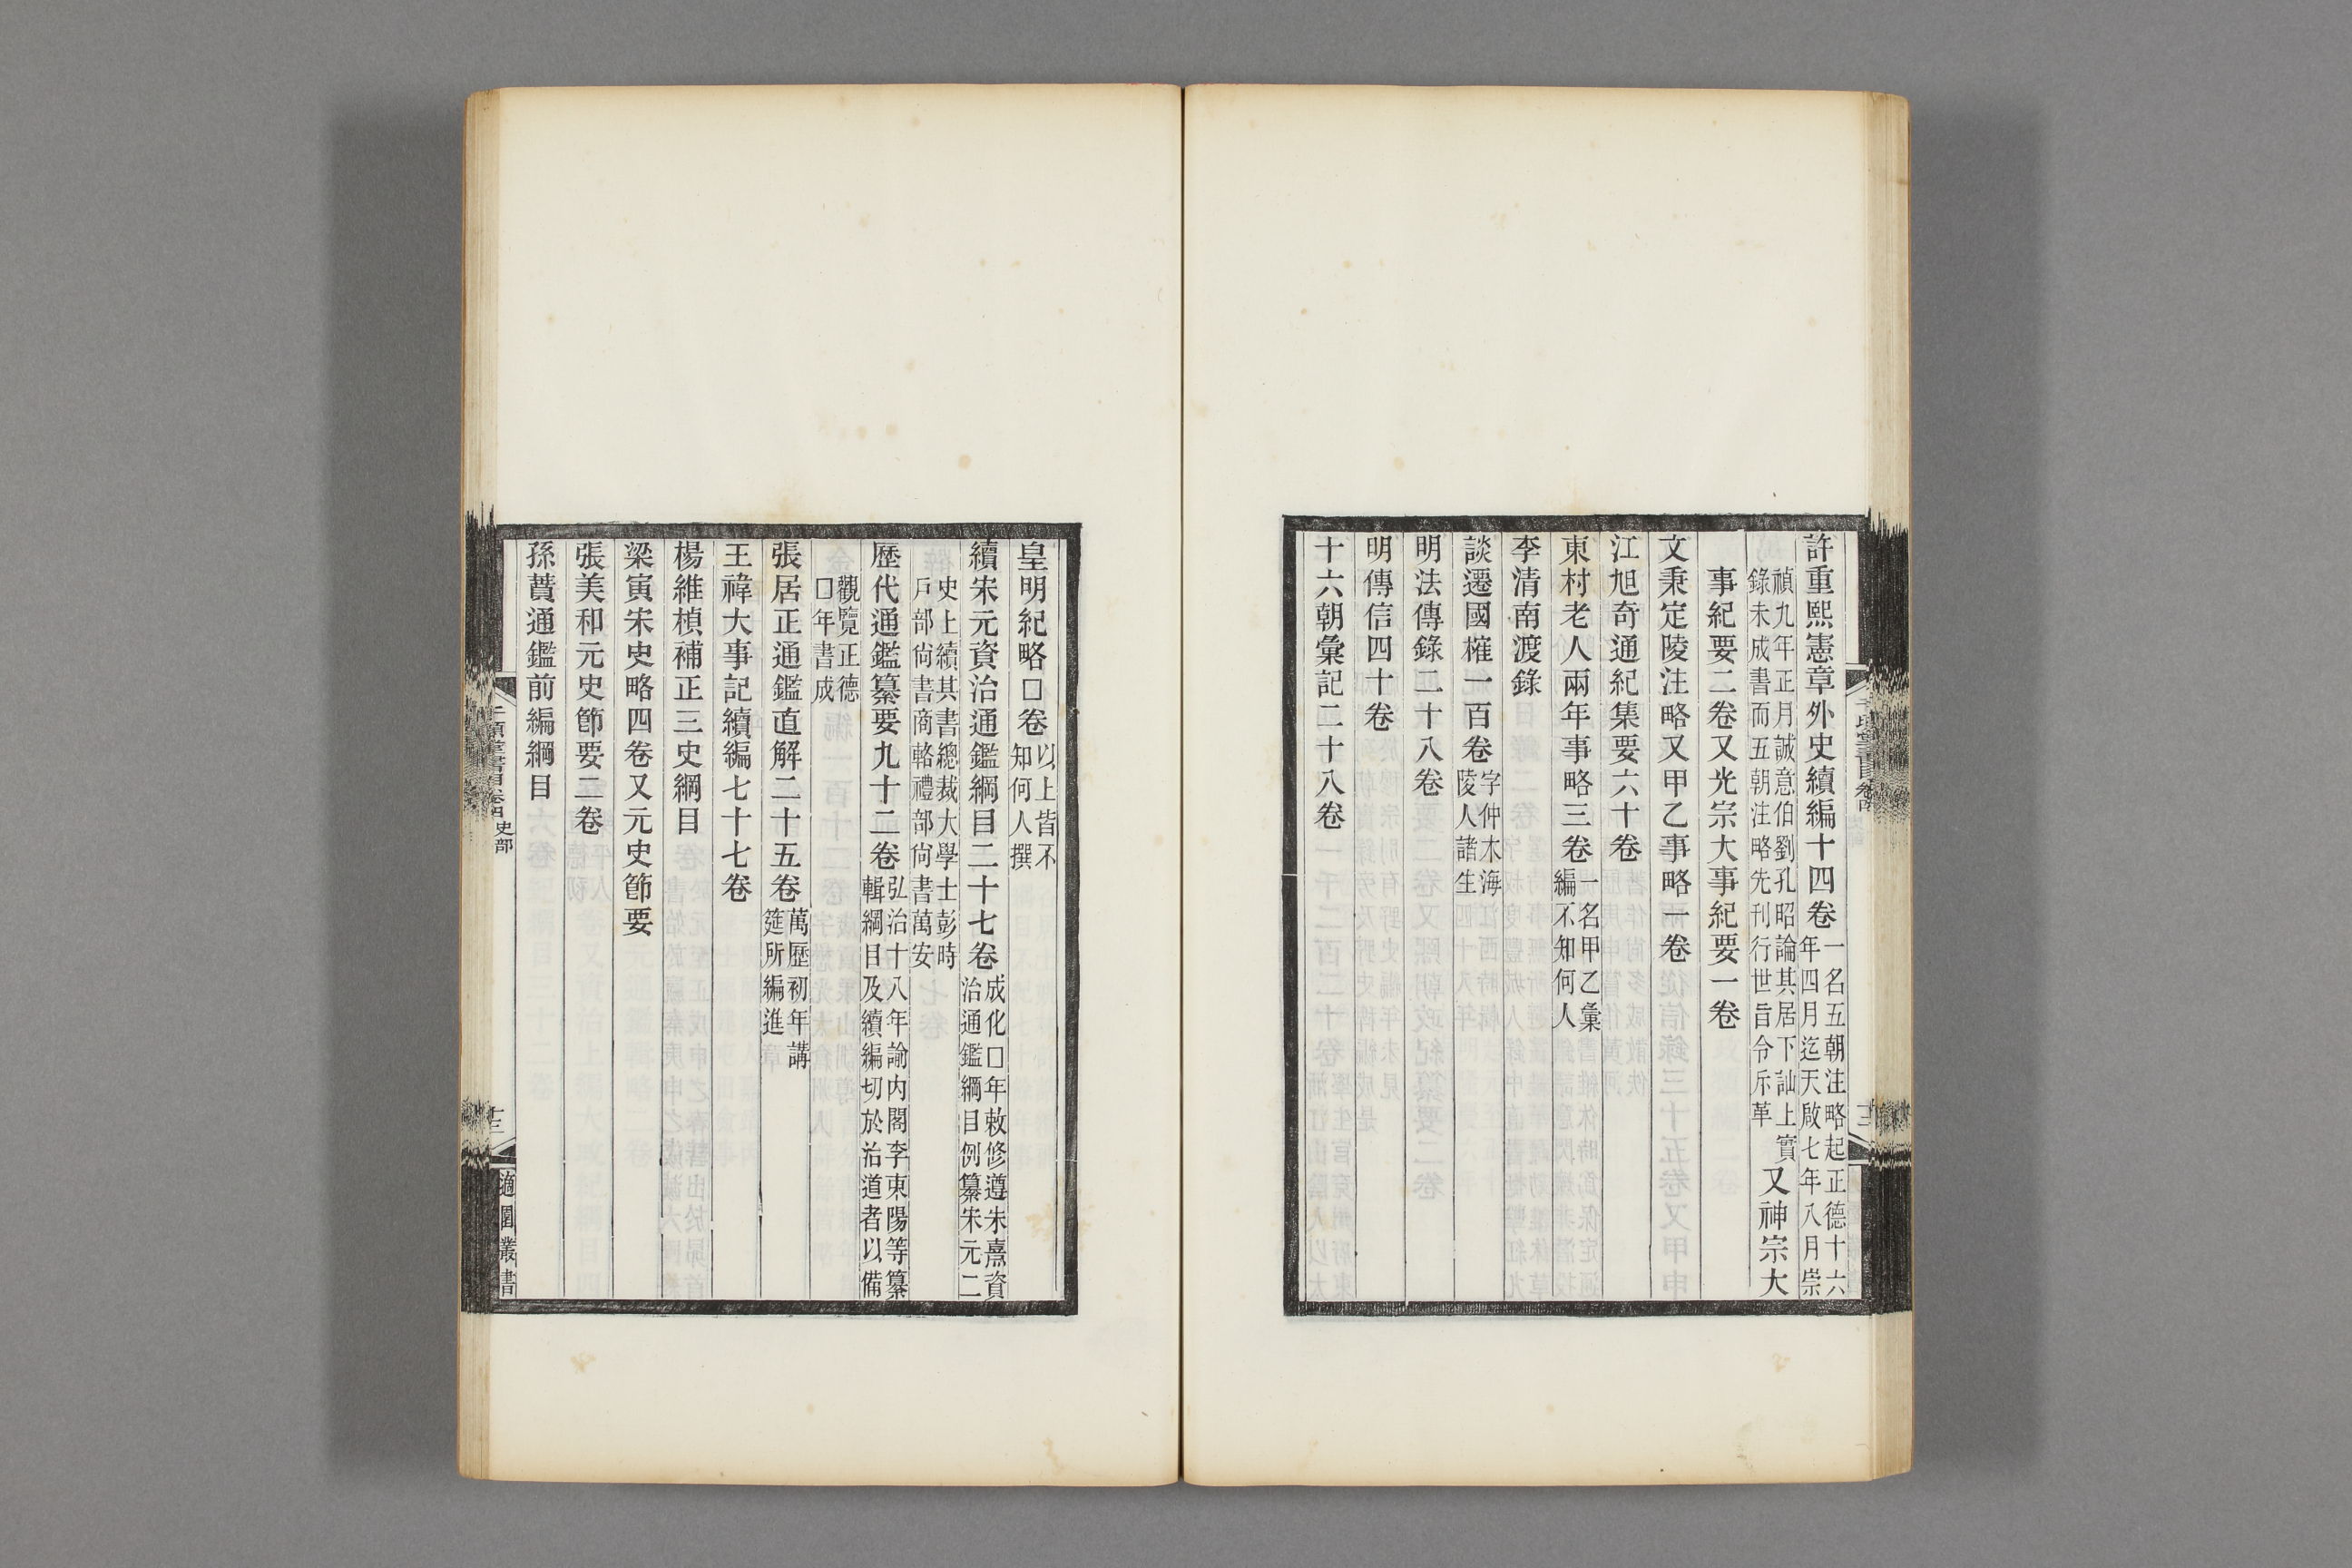 許重熙憲章外史續編十四卷一名五朝注略起正德十六年四月迄天啟七年八月崇
禎九年正月誠意伯劉孔昭論其居下訕上實錄未成書而五朝注略先刊行世旨令斥革又神宗大
事紀要二卷又光宗大事紀要一卷
文秉定陵注略又甲乙事略一卷
江旭奇通紀集要六十卷
東村老人兩年事略三卷一名甲乙彙編不知何人
李清南渡錄
談遷國榷一百卷字仲木海陵人諸生
明法傳錄二十八卷
明傳信四十卷
十六朝彙記二十八卷
皇明紀略□卷以上皆不知何人撰
續宋元資治通鑑綱目二十七卷成化□年敕修遵朱熹資治通鑑綱目例纂宋元二
史上續其書總裁大學士彭時戶部尙書商輅禮部尙書萬安
歷代通鑑纂要九十二卷弘治十八年諭內閣李東陽等纂輯綱目及續編切於治道者以備
觀覽正德□年書成
張居正通鑑直解二十五卷萬歷初年講筵所編進
王禕大事記續編七十七卷
楊維楨補正三史綱目
梁寅宋史略四卷又元史節要
張美和元史節要二卷
孫蕡通鑑前編綱目
千頃堂書目卷四 史部
十三
適園叢書